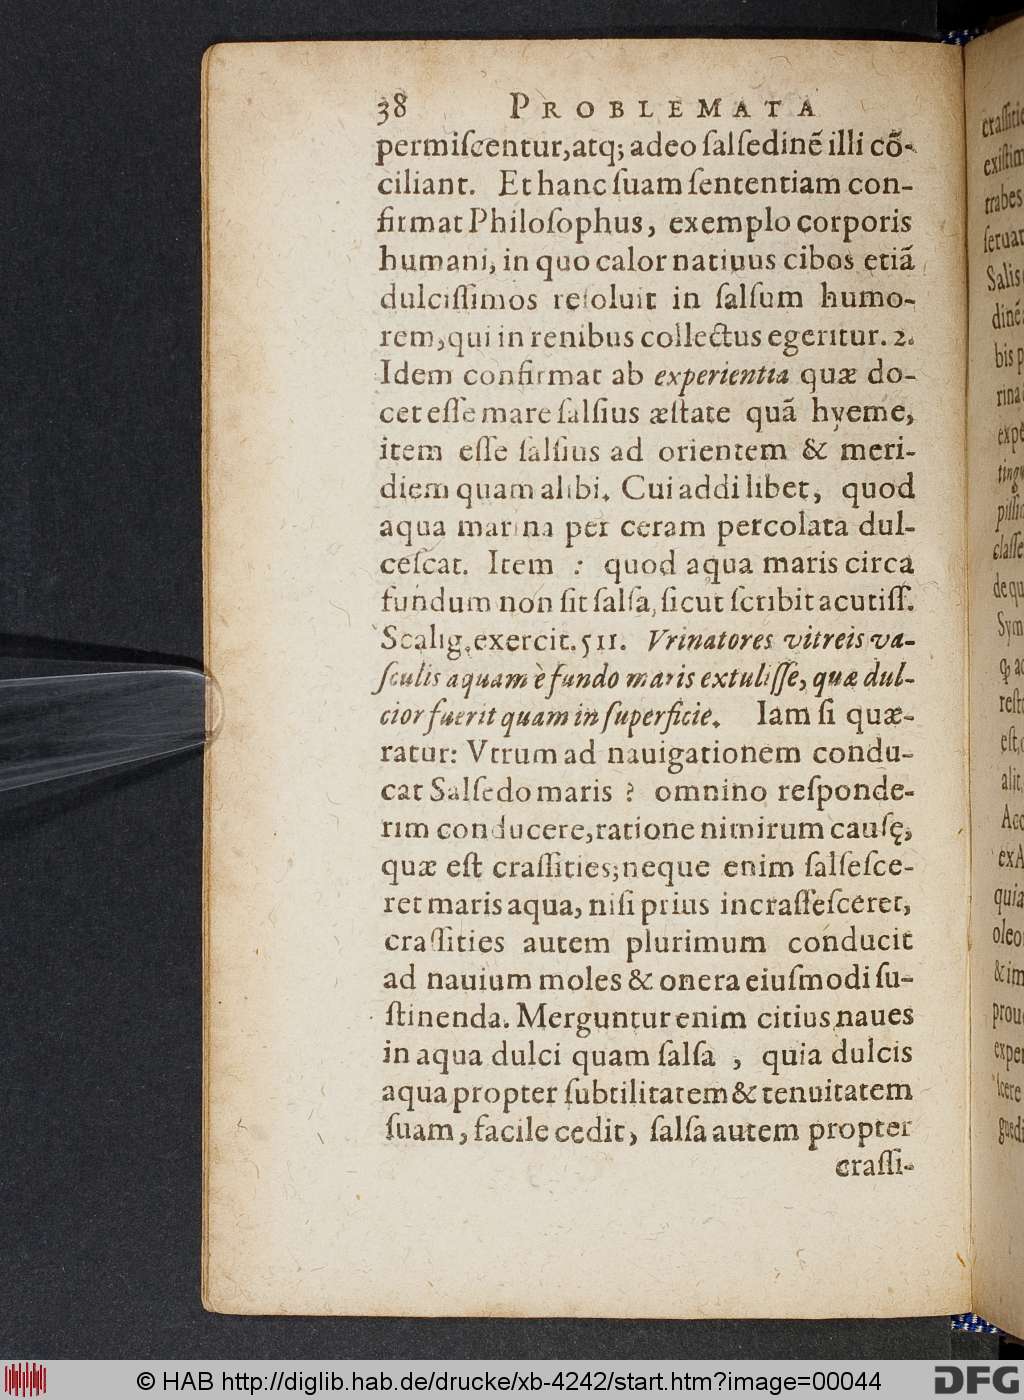 38 PROBLEMATA
permiſcentur, atq; adeo ſalſedinẽ illi cõ-
ciliant. Et hanc ſuam ſententiam con-
firmat Philoſophus, exemplo corporis
humani, in quo calor natiuus cibos etiã
dulciſſimos reſoluit in ſalſum humo-
rem, qui in renibus collectus egeritur. 2.
Idem confirmat ab experientia quæ do-
cet eſſe mare ſalſius æſtate quã hyeme,
item eſſe ſalſius ad orientem & meri-
diem quam alibi. Cui addi libet, quod
aqua marina per ceram percolata dul-
ceſcat. Item : quod aqua maris circa
fundum non ſit ſalſa, ſicut ſcribit acutiſſ.
Scalig. exercit. 511. Vrinatores vitreis va-
ſculis aquam è fundo maris extuliſſe, quæ dul-
cior fuerit quam in ſuperficie. Iam ſi quæ-
ratur: Vtrum ad nauigationem condu-
cat Salſedo maris ? omnino reſponde-
rim conducere, ratione nimirum cauſę,
quæ eſt craſſities; neque enim ſalſeſce-
ret maris aqua, niſi prius incraſſeſceret,
craſſities autem plurimum conducit
ad nauium moles & onera eiuſmodi ſu-
ſtinenda. Merguntur enim citius naues
in aqua dulci quam ſalſa , quia dulcis
aqua propter ſubtilitatem & tenuitatem
ſuam, facile cedit, ſalſa autem propter
craſſi-
© HAB http://diglib.hab.de/drucke/xb-4242/start.htm?image=00044
DFG